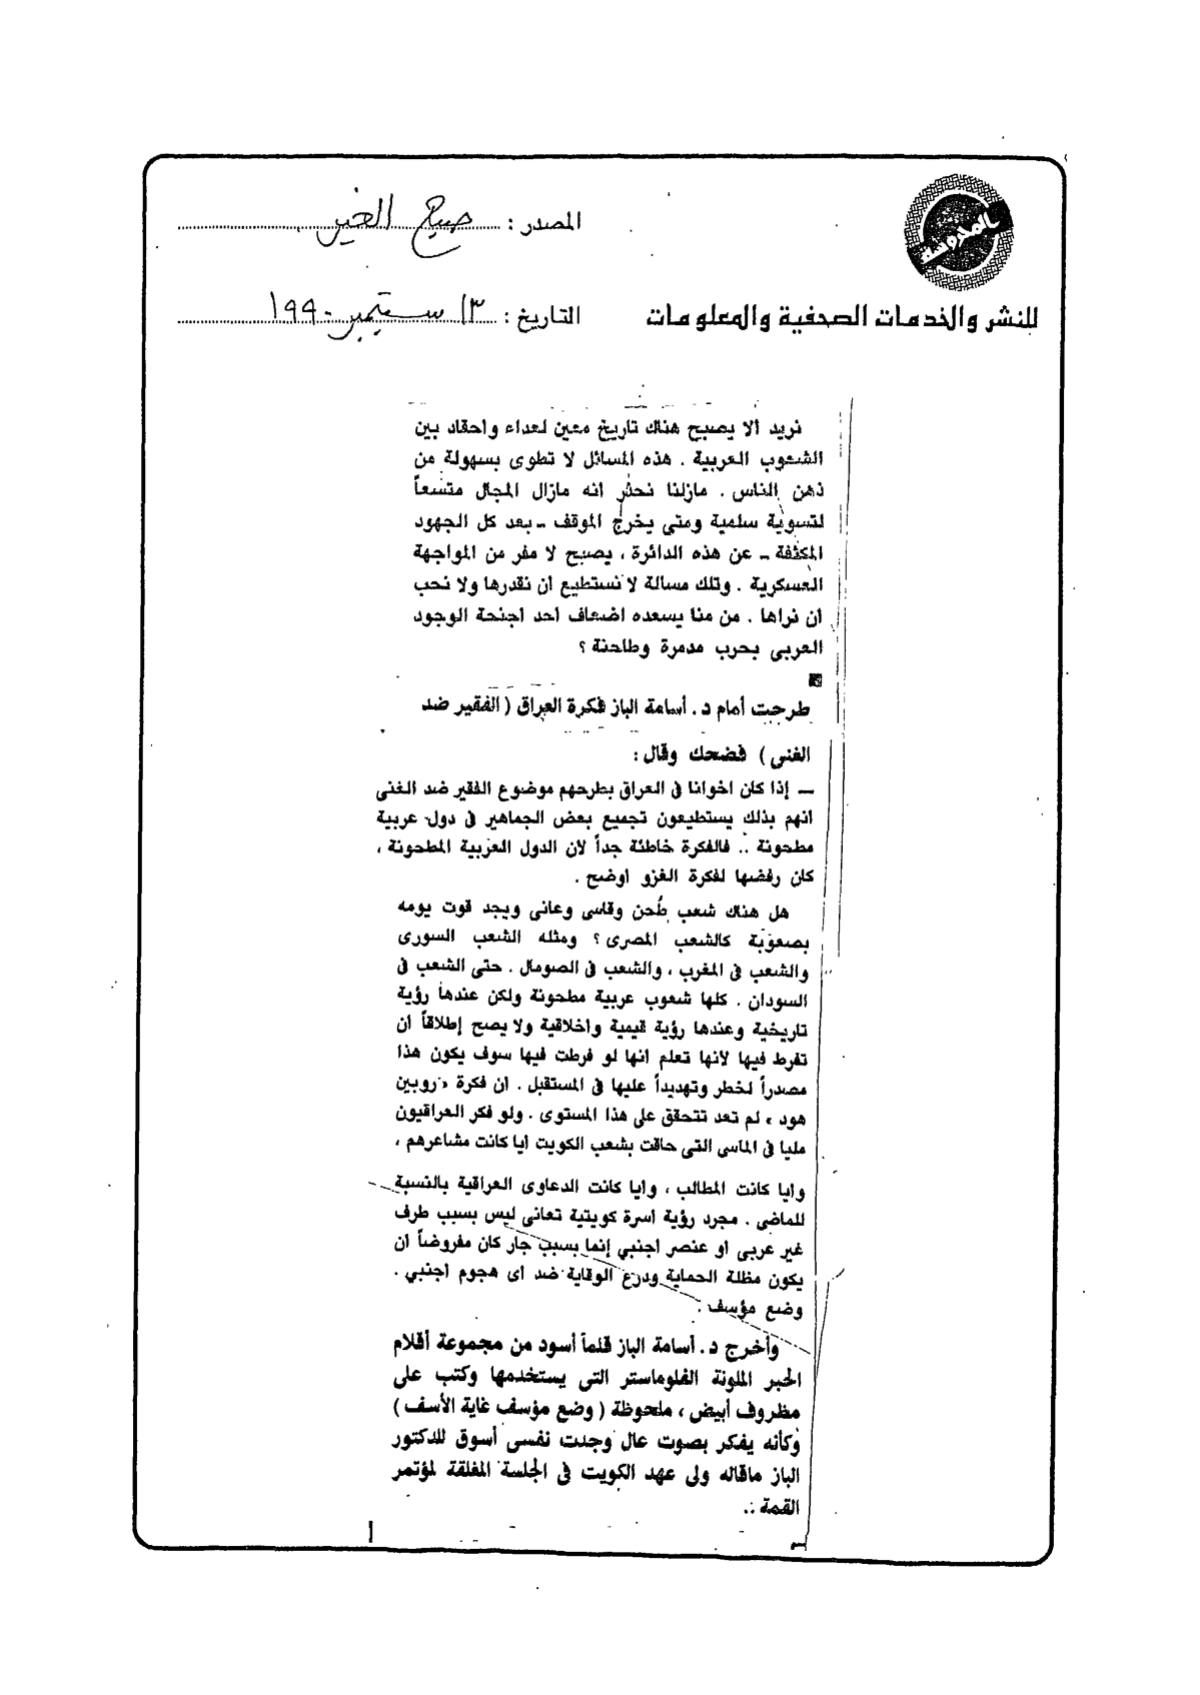 المصدر : صباح الخير
للنشر والخدمات الصحفية والمعلومات
التاريخ : ١٣ سبتمبر ١٩٩٠
نريد ألا يصبح هناك تاريخ معين لعداء واحقاد بين
الشعوب العربية . هذه المسائل لا تطوى بسهولة من
ذهن الناس . مازلنا نحذر انه مازال المجال متسعاً
لتسوية سلمية ومتى يخرج الموقف ــ بعد كل الجهود
المكثفة ــ عن هذه الدائرة ، يصبح لا مفر من المواجهة
العسكرية . وتلك مسالة لا نستطيع ان نقدرها ولا نحب
ان نراها . من منا يسعده اضعاف احد اجنحة الوجود
العربى بحرب مدمرة وطاحنة ؟
طرحت أمام د. أسامة الباز فكرة العراق ( الفقير ضد
الغنى ) فضحك وقال :
ــ إذا كان اخوانا فى العراق بطرحهم موضوع الفقير ضد الغنى
انهم بذلك يستطيعون تجميع بعض الجماهير فى دول عربية
مطحونة .. فالفكرة خاطئة جداً لان الدول العربية المطحونة ،
كان رفضها لفكرة الغزو اوضح .
هل هناك شعب طُحن وقاسى وعانى ويجد قوت يومه
بصعوبة كالشعب المصرى ؟ ومثله الشعب السورى
والشعب فى المغرب ، والشعب فى الصومال . حتى الشعب فى
السودان . كلها شعوب عربية مطحونة ولكن عندها رؤية
تاريخية وعندها رؤية قيمية واخلاقية ولا يصح إطلاقاً ان
تفرط فيها لانها تعلم انها لو فرطت فيها سوف يكون هذا
مصدراً لخطر وتهديداً عليها فى المستقبل . ان فكرة « روبين
هود » لم تعد تتحقق على هذا المستوى . ولو فكر العراقيون
مليا فى الماسى التى حاقت بشعب الكويت ايا كانت مشاعرهم ،
وايا كانت المطالب ، وايا كانت الدعاوى العراقية بالنسبة
للماضى . مجرد رؤية اسرة كويتية تعانى ليس بسبب طرف
غير عربى او عنصر اجنبي إنما بسبب جار كان مفروضاً ان
يكون مظلة الحماية ودرع الوقاية ضد اى هجوم اجنبي .
وضع مؤسف .
وأخرج د. أسامة الباز قلماً أسود من مجموعة أقلام
الحبر الملونة الفلوماستر التى يستخدمها وكتب على
مظروف أبيض ، ملحوظة ( وضع مؤسف غاية الأسف )
وكأنه يفكر بصوت عال وجدت نفسى أسوق للدكتور
الباز ماقاله ولى عهد الكويت فى الجلسة المغلقة لمؤتمر
القمة ..